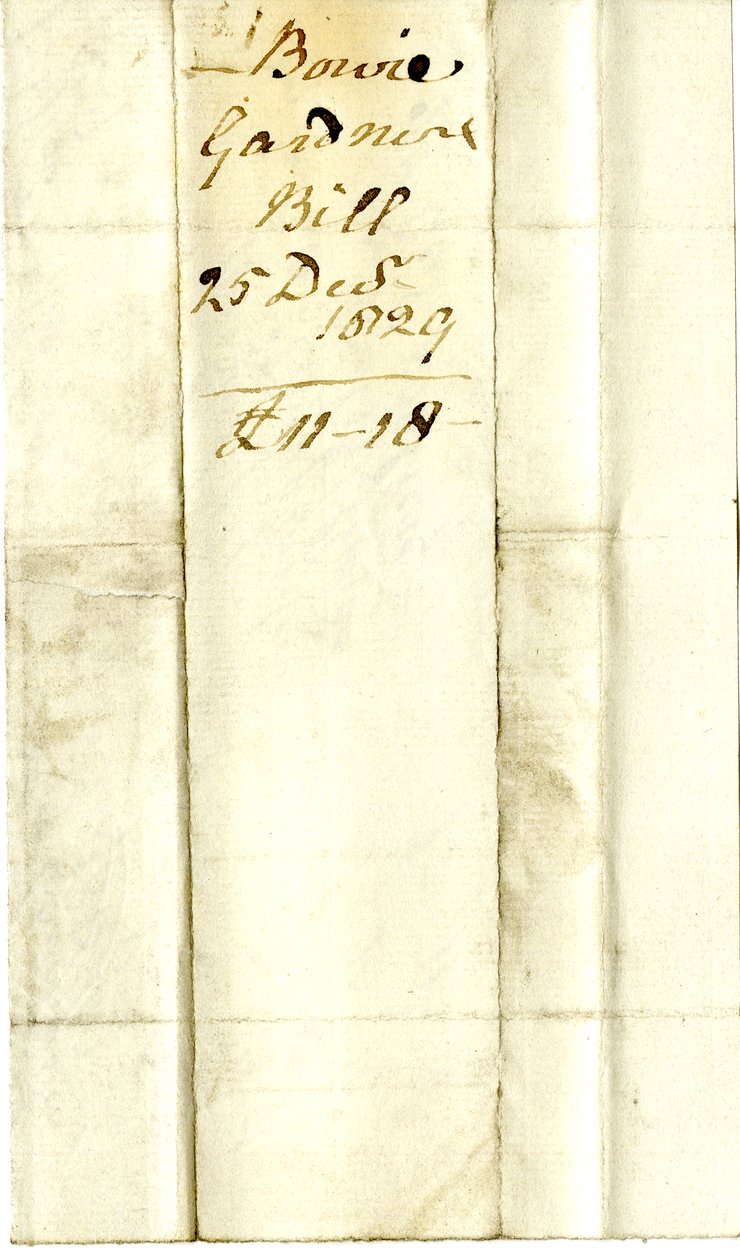 Bowie
Gardners
Bill
25 Decr
1829
£11-18-